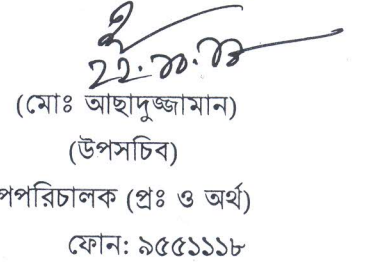 (মোঃ আছাদুজ্জামান)
(উপসচিব)
পপরিচালক (প্রঃ ও অর্থ)
ফোন: ৯৫৫১১১৮